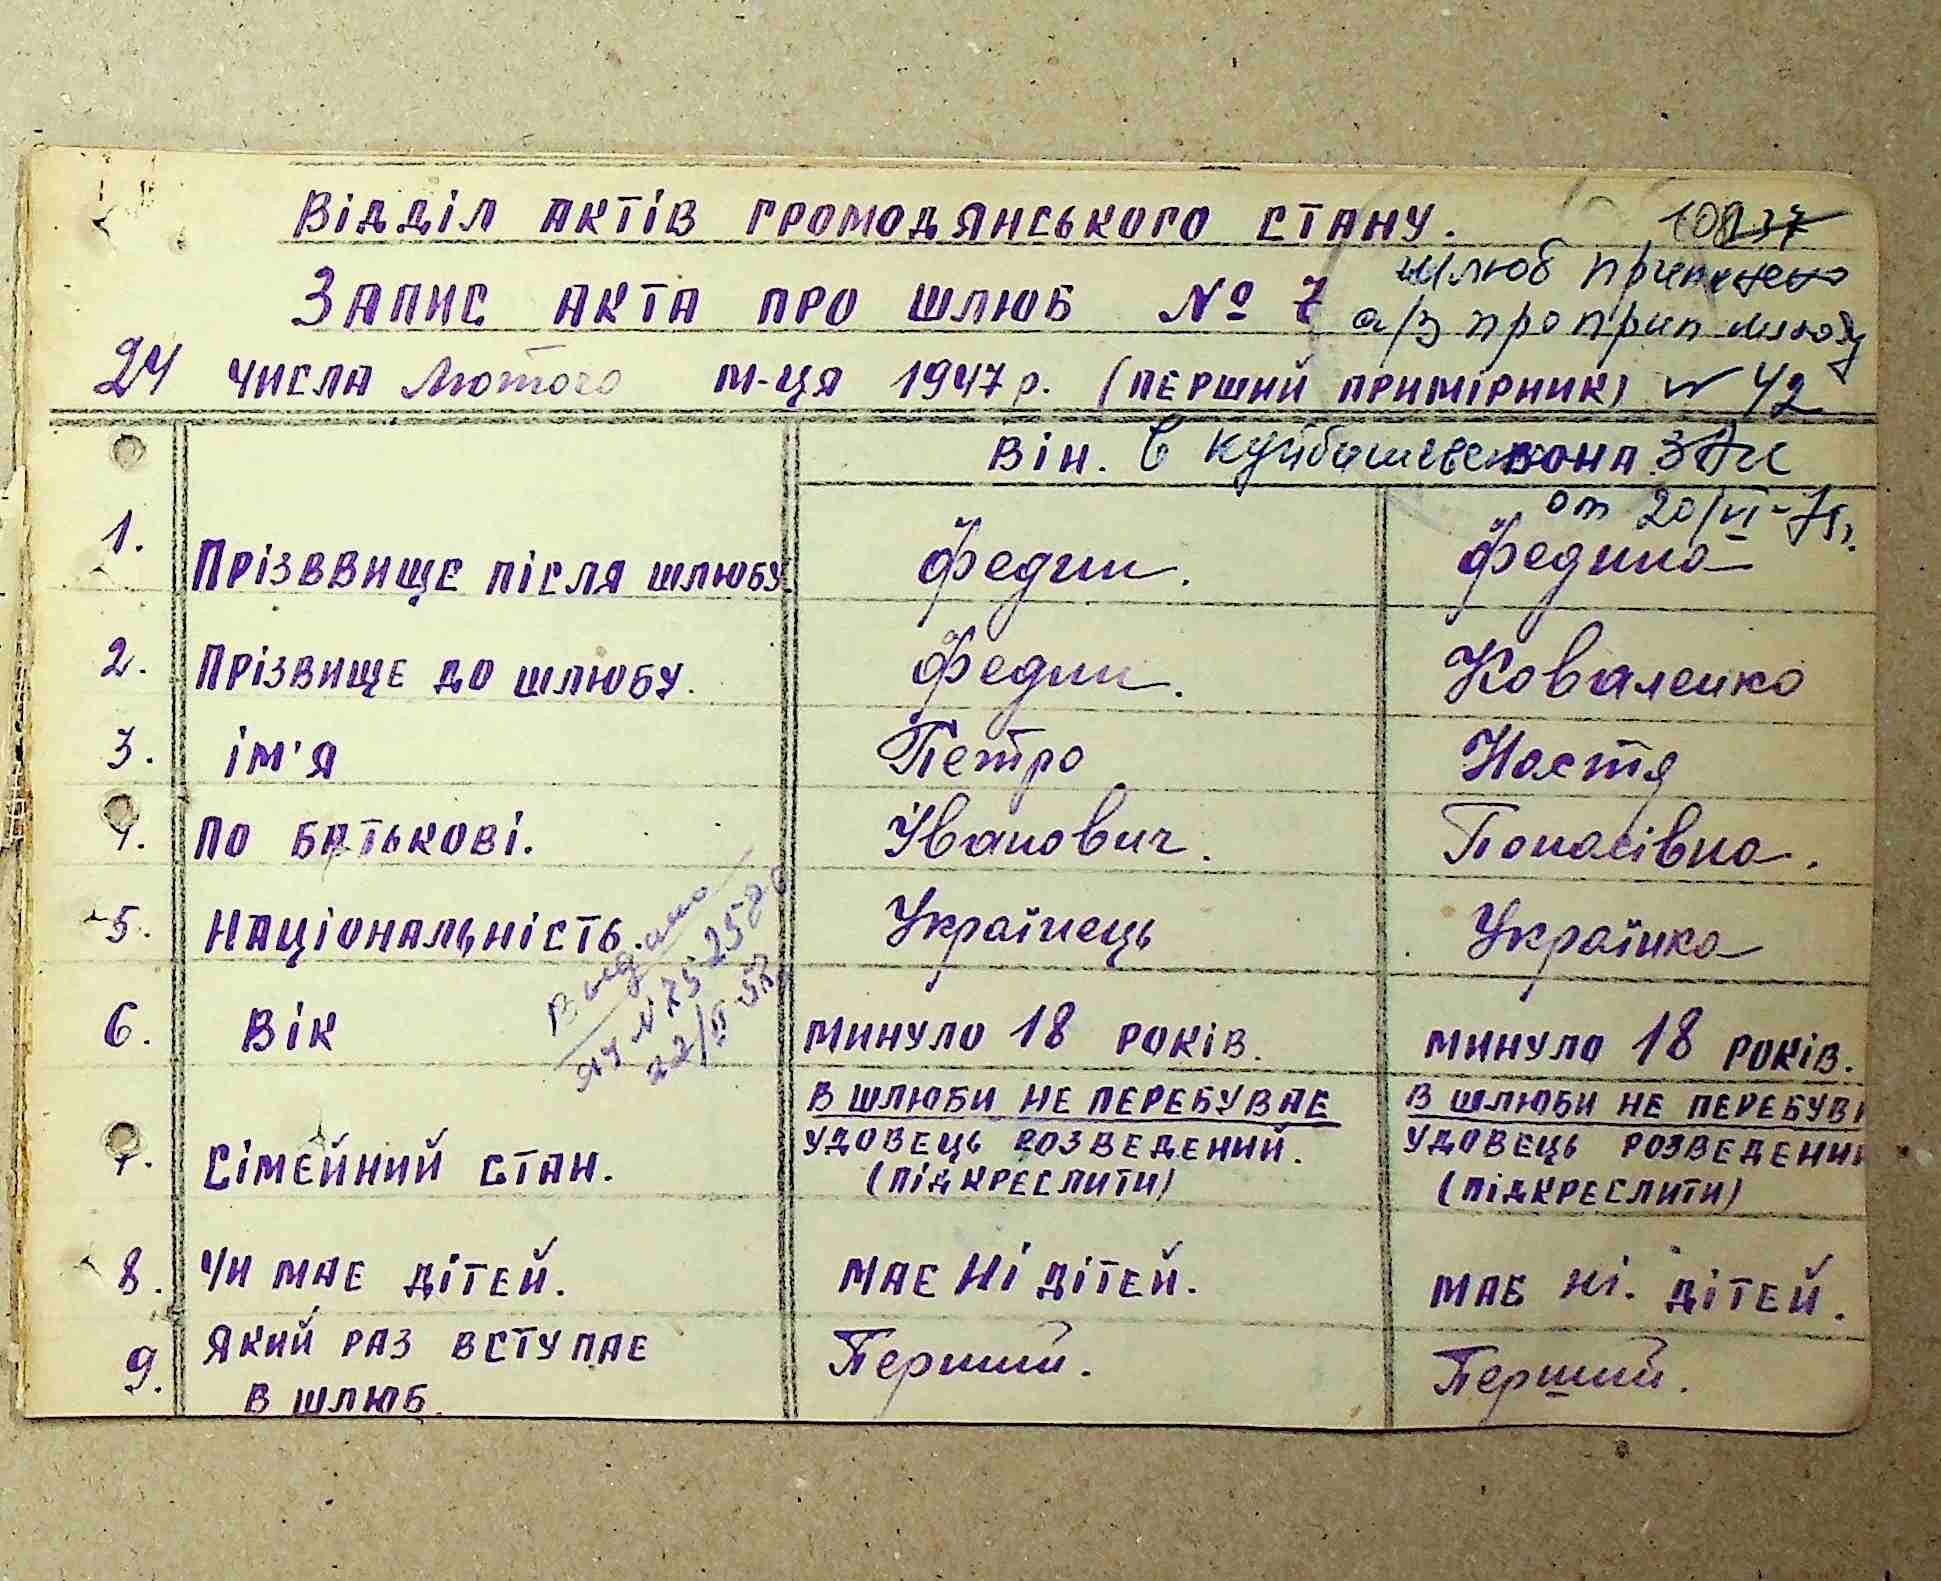 Відділ актів громодянського стану. 108
Запис акта про шлюб № 7
шлюб припинено
а/з про прип шлюбу
24 числа Лютого м-ця 1947 р. (перший примірник) № 42
Він. Вона.
в Куйбишевськ ЗАГС
от 20/VI-
1. Прізввище після шлюбу Федин. Федина
2. Прізвище до шлюбу. Федин. Коваленко
3. ім'я Петро Настя
4. по батькові. Іванович. Панасівна.
5. Національність. Українець Українка
Видано
22/II-58
6. Вік минуло 18 років. минуло 18 років.
в шлюби не перебував в шлюби не перебув
7. Сімейний стан. удовець розведений. удовець розведений
(підкреслити) (підкреслити)
8. Чи має дітей. має ні дітей. має ні. дітей.
9. Який раз вступає Перший. Перший.
в шлюб.